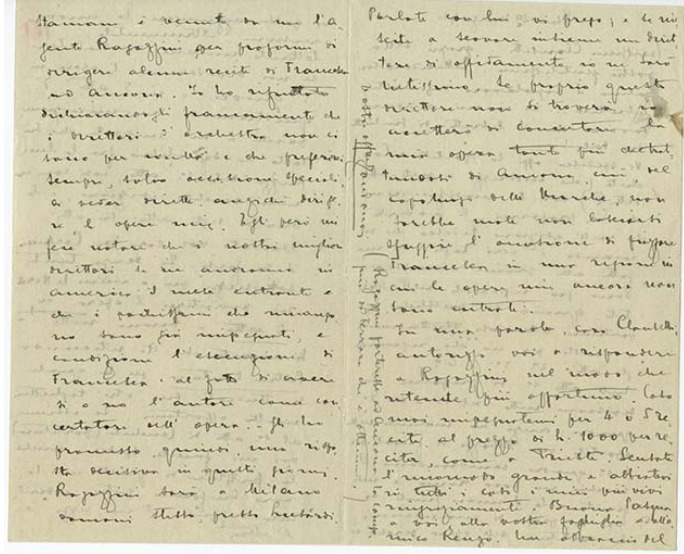 Stamani è venuto da me l'a-
gente Ragazzini per propormi di
dirigere alcune recite di Francesca
ad Ancona. Io ho rifiutato
dichiarandogli francamente che
i direttori d'orchestra non ci
sono per nulla e che preferirei
sempre, salvo occasioni speciali,
di veder dirette anziché dirige-
re l'opere mie. Egli però mi
fece notare che i nostri migliori
direttori se ne andranno in
America il mese entrante e
che i pochissimi che rimango-
no sono già impegnati, e
condiziona l'esecuzione di
Francesca al fatto di avere
sì o no l'autore come con-
certatore dell'opera. Gli ho
promesso, quindi, una rispo-
sta decisiva in questi giorni.
Ragazzini sarà a Milano
domani stesso, presso
Parlate con lui, vi prego; e se riu-
scite a scovare insieme un diret-
tore di affidamento io ne sarò
lietissimo. Se proprio questo
direttore non si troverà io
accetterò di concertare la
mia opera tanto più che trat-
tandosi di Ancona, che è del
capoluogo delle Marche, non
sarebbe male non lasciarsi
sfuggire l'occasione di
Francesca in una regione in
cui le opere mie ancora non
sono entrate.
In una parola, caro Clausetti,
autorizzo voi a rispondere
a Ragazzini nel modo che
riterrete più opportuno. Caso
mai impegnatemi per 4 o 5 re-
cite, al prezzo di L. 1000 per re-
cita, come a Trieste. Scusate
l'incomodo grande e abbiatevi
in tutti i casi i miei più vivi
ringraziamenti. Buona Pasqua
a voi alla vostra famiglia e all'a-
mico Renzo. Un abbraccio del